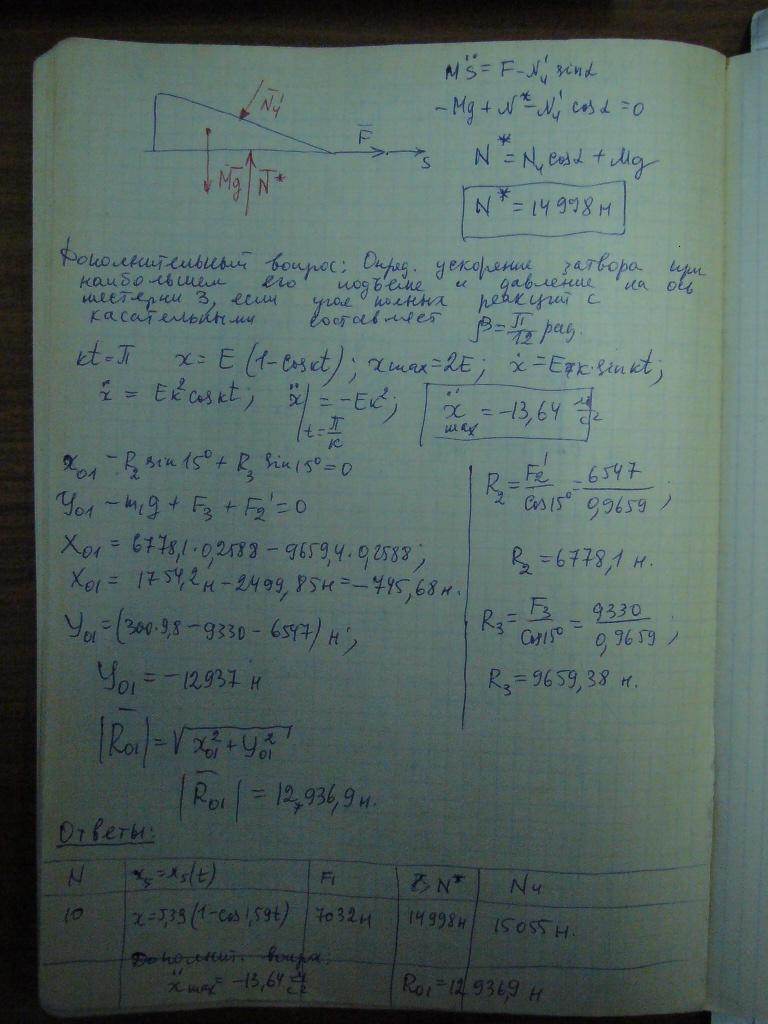 MS̈ = F − N₄' sinα
−Mg + N* − N₄' cosα = 0
N* = N₄ cosα + Mg
N* = 14998 н
N̄₄'
F̄
S
M̄g
N̄*
Дополнительный вопрос: Опред. ускорение затвора при
наибольшем его подъеме и давление на ось
шестерни 3, если угол полных реакций с
касательными составляет β = π/12 рад.
kt = π x = E (1 − cos kt); x max = 2E; ẋ = E k · sin kt;
ẍ = Ek² cos kt; ẍ| t = π/k = −Ek²; ẍ max = −13,64 м/с²
X₀₁ − R₂ sin 15° + R₃ sin 15° = 0
Y₀₁ − m₁g + F₃ + F₂' = 0
X₀₁ = 6778,1 · 0,2588 − 9659,4 · 0,2588;
X₀₁ = 1754,2 н − 2499,85 н = −745,68 н.
Y₀₁ = (300·9,8 − 9330 − 6547) н;
Y₀₁ = −12937 н
|R̄₀₁| = √(X₀₁² + Y₀₁²)
|R̄₀₁| = 12,936,9 н.
R₂ = F₂'/cos 15° = 6547/0,9659;
R₂ = 6778,1 н.
R₃ = F₃/cos 15° = 9330/0,9659;
R₃ = 9659,38 н.
Ответы:
N x₅ = x₅(t) F₁ N* N₄
10 x = 5,39 (1 − cos 1,59t) 7032 н 14998 н 15055 н.
Дополнит. вопрос:
ẍ max = −13,64 м/с² R₀₁ = 12936,9 н